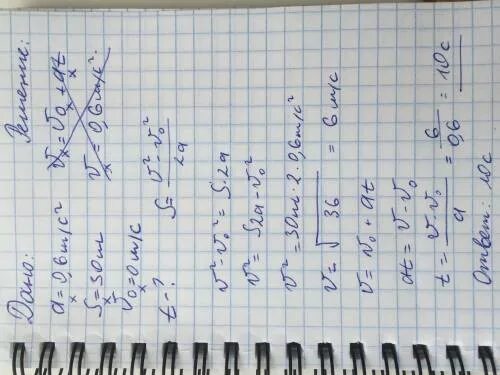 Дано:
aₓ = 0,6 м/с²
Sₓ = 30 м
V₀ₓ = 0 м/с
t - ?
Решение:
Vₓ = V₀ₓ + aₓt
Vₓ = 0,6 м/с².
S = (V² - V₀²) / 2a
V² - V₀² = S · 2a
V² = S2a - V₀²
V² = 30м · 2 · 0,6 м/с²
V = √36 = 6 м/с
V = V₀ + at
at = V - V₀
t = (V - V₀) / a = 6 / 0,6 = 10 с
Ответ: 10 с